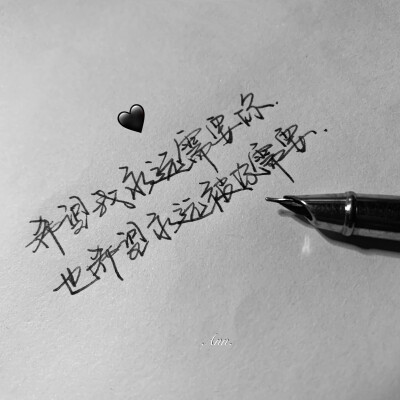 希望我永远需要你.
也希望永远被你需要.
Ann.